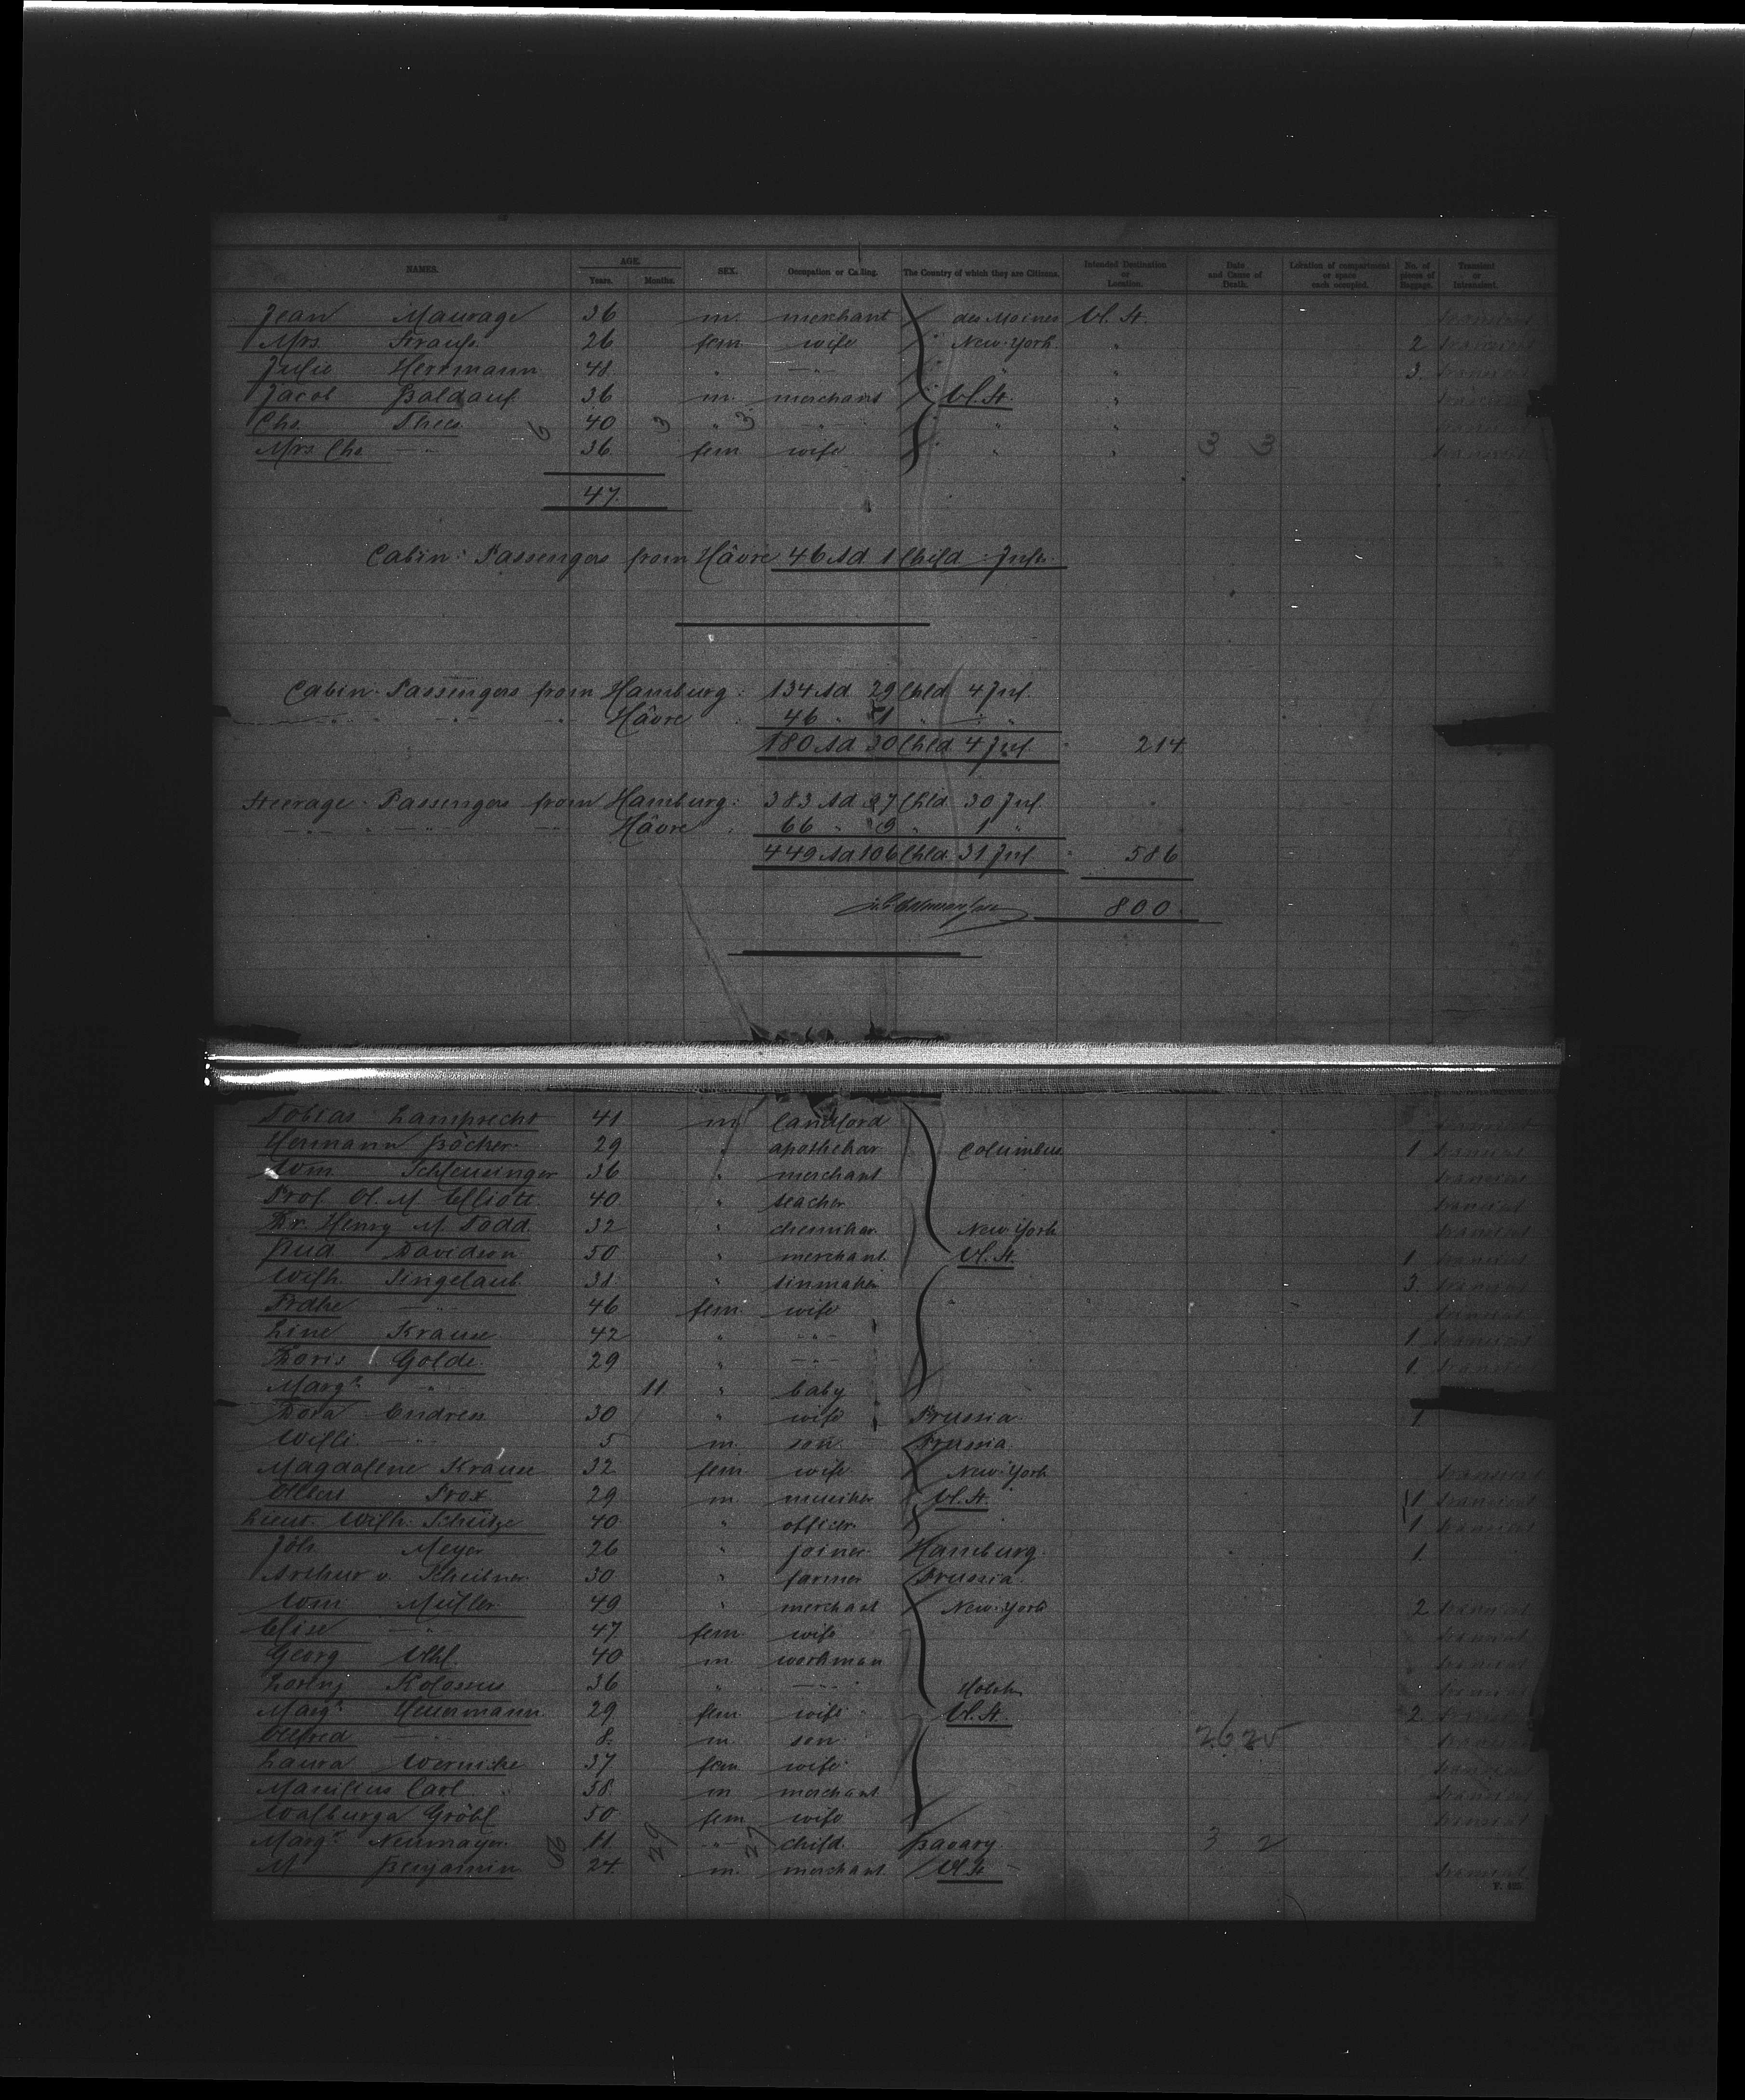 NAMES. AGE. Years. Months. SEX. Occupation or Calling. The Country of which they are Citizens. Intended Destination or Location. Date and Cause of Death. Location of compartment or space each occupied. No. of pieces of Baggage. Transient or Intransient.
Jean Maurage 36 m. merchant des Moines U. St. transient
Mrs. Krauss 26 fem wife New-York " 2 transient
Julie Herrmann 48 " -"- " " 3. transient
Jacob Baldauf 36 m. merchant U. St. " transient
Chs. Thees 40 " -"- " " transient
6 3 3
Mrs Chs -"- 36 fem wife " " transient
3 3
47.
Cabin-Passengers from Hâvre 46 Ad 1 Child - Inf.
Cabin-Passengers from Hamburg: 134 Ad 29 Chld 4 Inf.
-"- " -"- -"- Hâvre 46 " 1 " - "
180 Ad 30 Chld 4 Inf. 214
Steerage-Passengers from Hamburg: 383 Ad 97 Chld 30 Inf.
-"- " -"- -"- Hâvre 66 " 9 " 1 "
449 Ad 106 Chld. 31 Inf 586
800.
Tobias Lamprecht 41 m landlord transient
Hermann Böcher 29 " apothekar Columbus 1 transient
Wm Schleusinger 36 " merchant transient
Prof. O. M. Elliott 40 " teacher transient
Dr. Henry M. Todd 32 " chemiker New-York transient
Davidson 50 " merchant. U. St. 1 transient
Wilh. Singelaub 38 " tinmaker 3. transient
46 fem. wife " transient
Line Krause 42 " -"- 1 transient
Doris Golde 29 " -"- 1. transient
Marg. -"- 11 " baby
Dora Endress 30 " wife Prussia. 1
Willi -"- 5 m. son Prussia.
Magdalene Krause 32 fem. wife New-York transient
Albert Prox 29 m. musiker U. St. 1 transient
Lieut. Wilh. Schulze 40 " officer 1 transient
Joh. Meyer 26 " joiner Hamburg. 1.
Arthur v. Scheibner 30 " farmer Prussia.
Wm Müller 49 " merchant New-York 2 transient
Elise -"- 47 fem. wife transient
Georg Uhl 40 m workman transient
36 " -"- transient
Marg. Heuermann 29 fem. wife U. St. 2. transient
Alfred -"- 8. m. son transient
26 25
Laura Wernicke 37 fem wife transient
Manilius Carl 58. m merchant transient
Walburga Gröbl 50 fem. wife transient
Marg. Neumayer 11 -"- child. Bavary
29 27 3 2
M Benjamin 24. m. merchant. U. St. transient